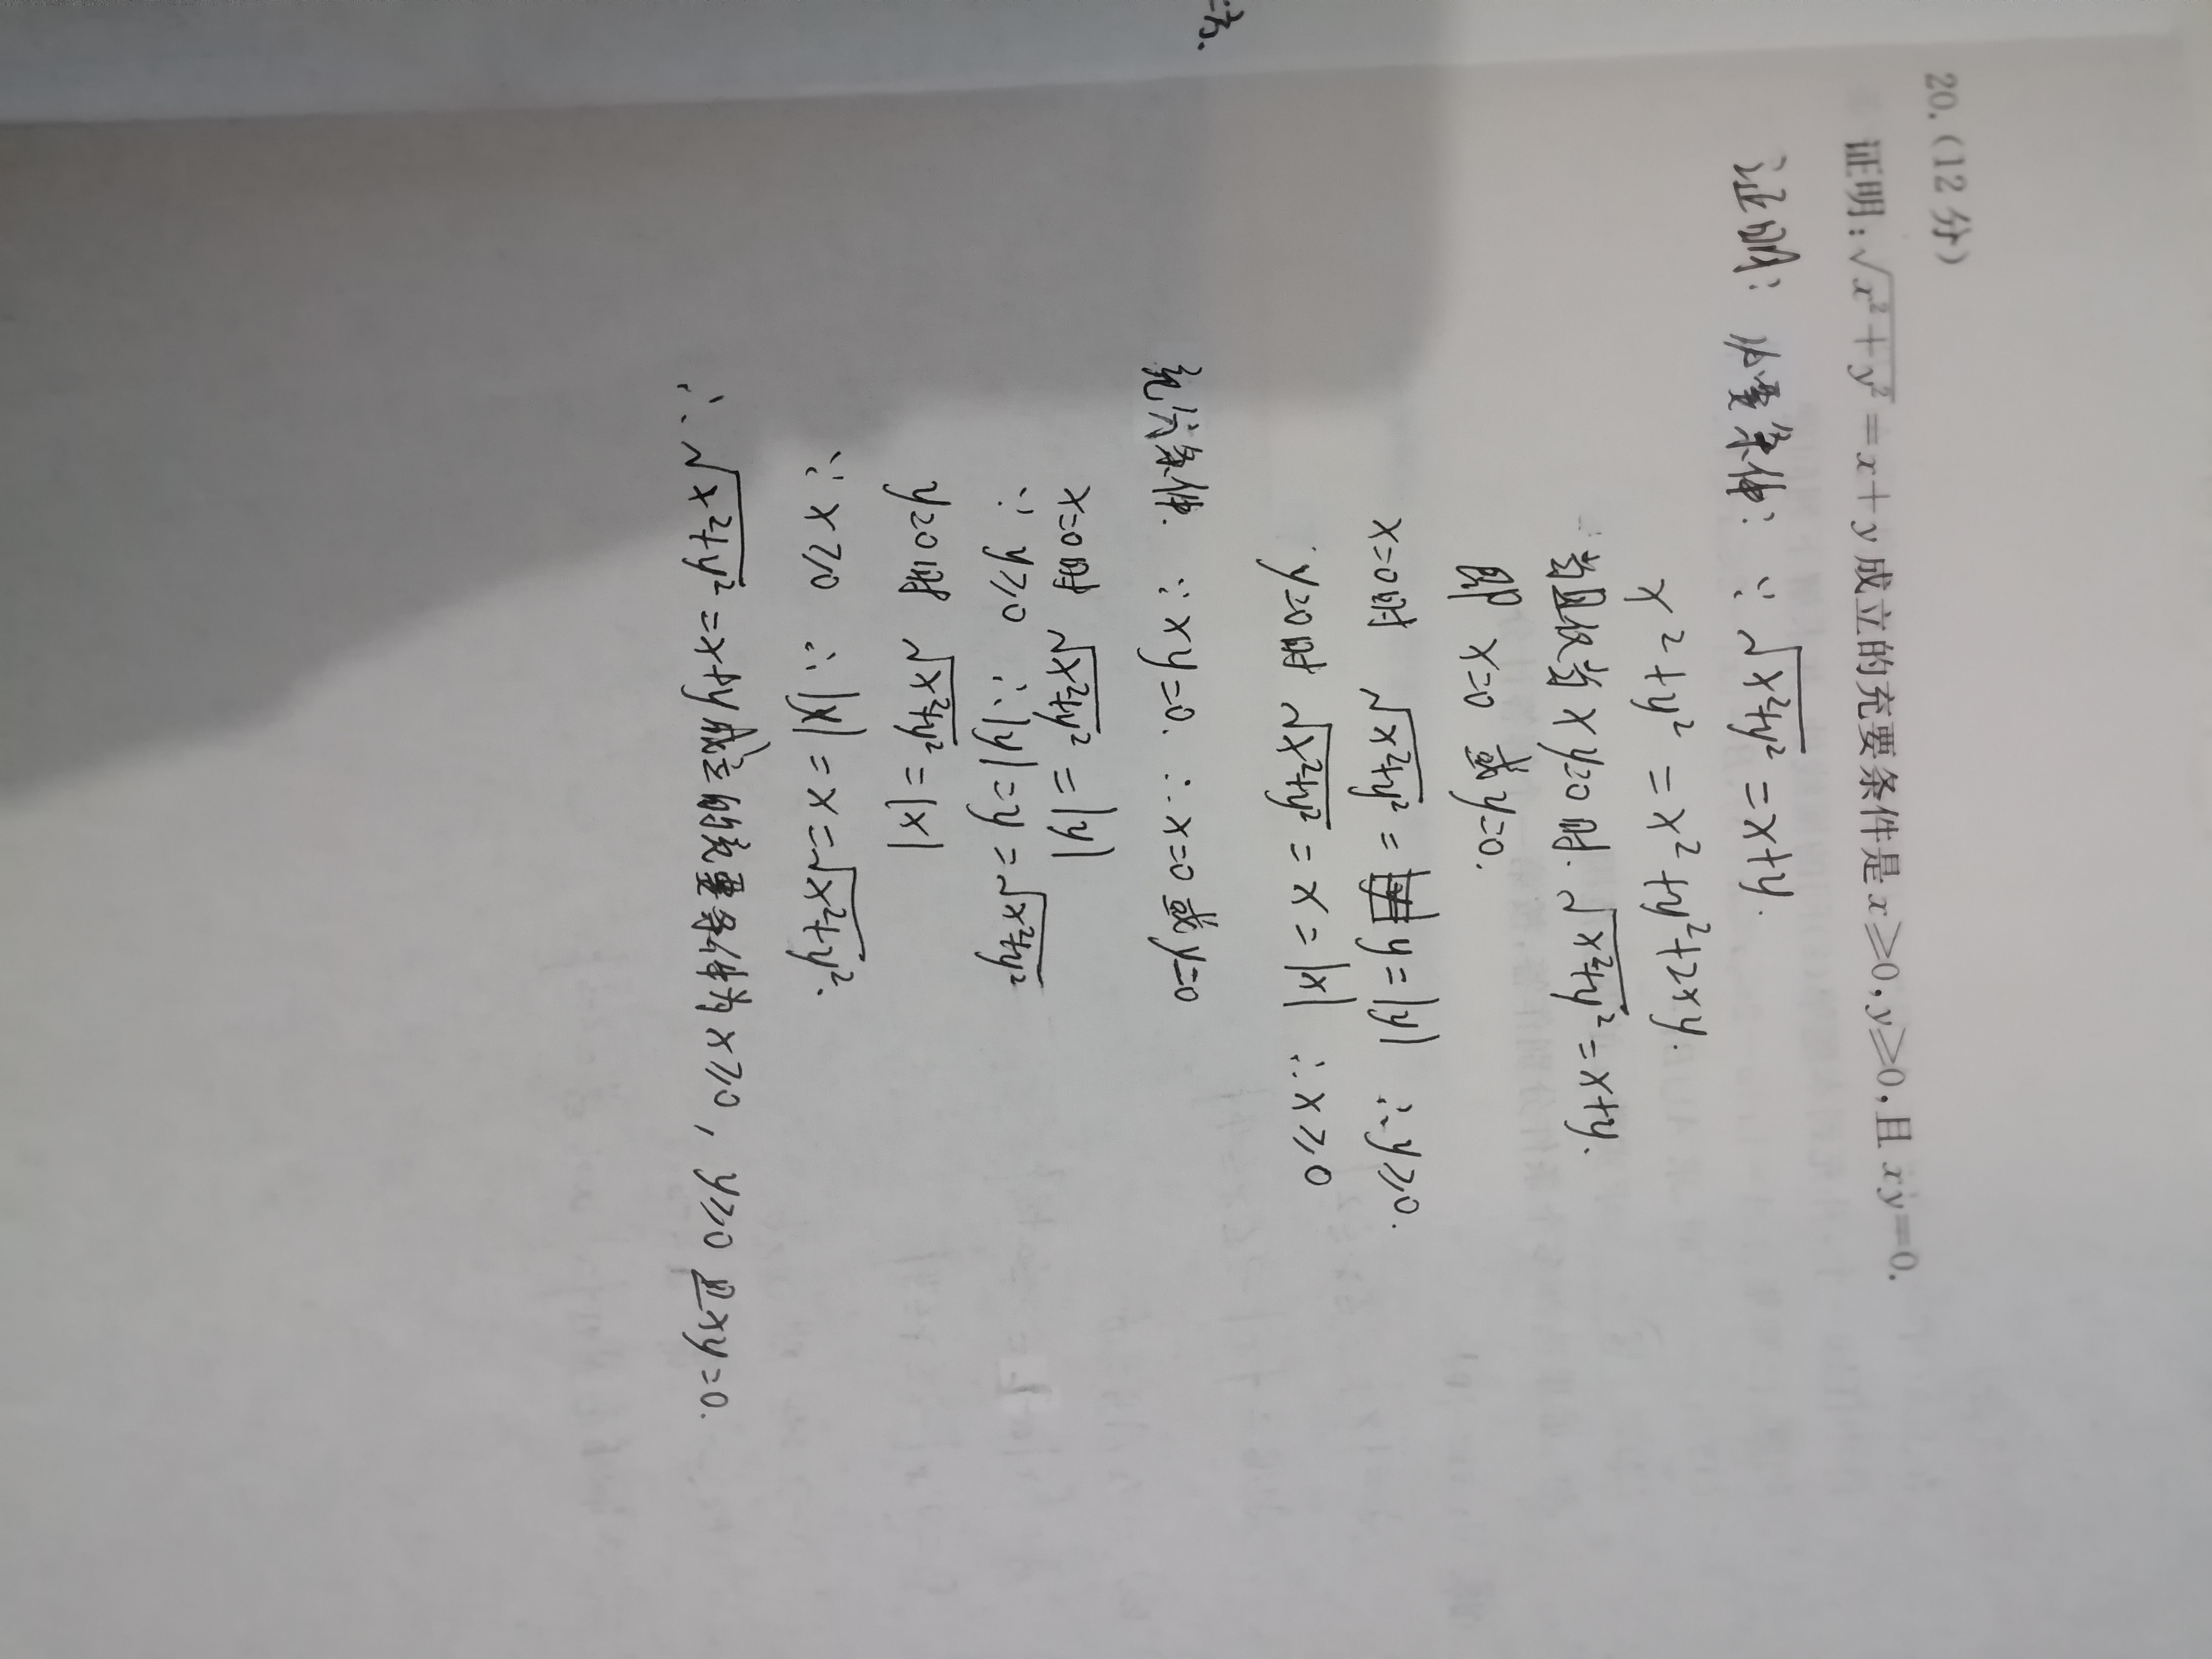 20.(12分)
证明:√x²+y²=x+y成立的充要条件是x≥0,y≥0,且xy=0.
证明: 必要条件: ∵ √x²+y² = x+y.
x²+y² = x²+y²+2xy.
当且仅当 xy=0时. √x²+y² = x+y.
即 x=0 或 y=0.
x=0时 √x²+y² = y = |y| ∴ y≥0.
y=0时 √x²+y² = x = |x| ∴ x≥0
充分条件. ∵ xy=0. ∴ x=0 或 y=0
x=0时 √x²+y² = |y|
∵ y≥0 ∴ |y| = y = √x²+y²
y=0时 √x²+y² = |x|
∵ x≥0 ∴ |x| = x = √x²+y².
∴ √x²+y² = x+y成立的充要条件为 x≥0, y≥0 且xy=0.